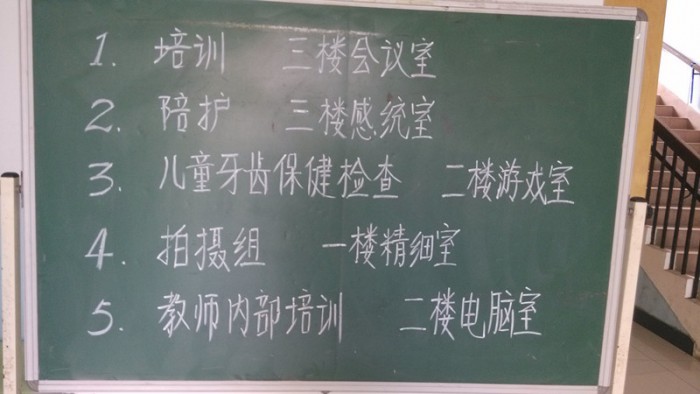 1. 培训 三楼会议室
2. 陪护 三楼感统室
3. 儿童牙齿保健检查 二楼游戏室
4. 拍摄组 一楼精细室
5. 教师内部培训 二楼电脑室